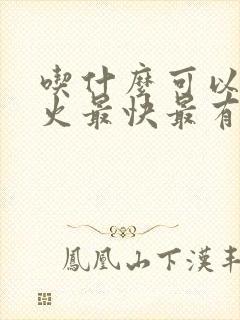 喫什麼可以
火最快最有
鳳凰山下漢丰